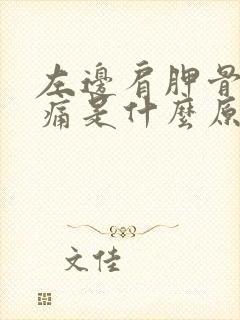 左邊肩胛骨
痛是什麼原
文佳